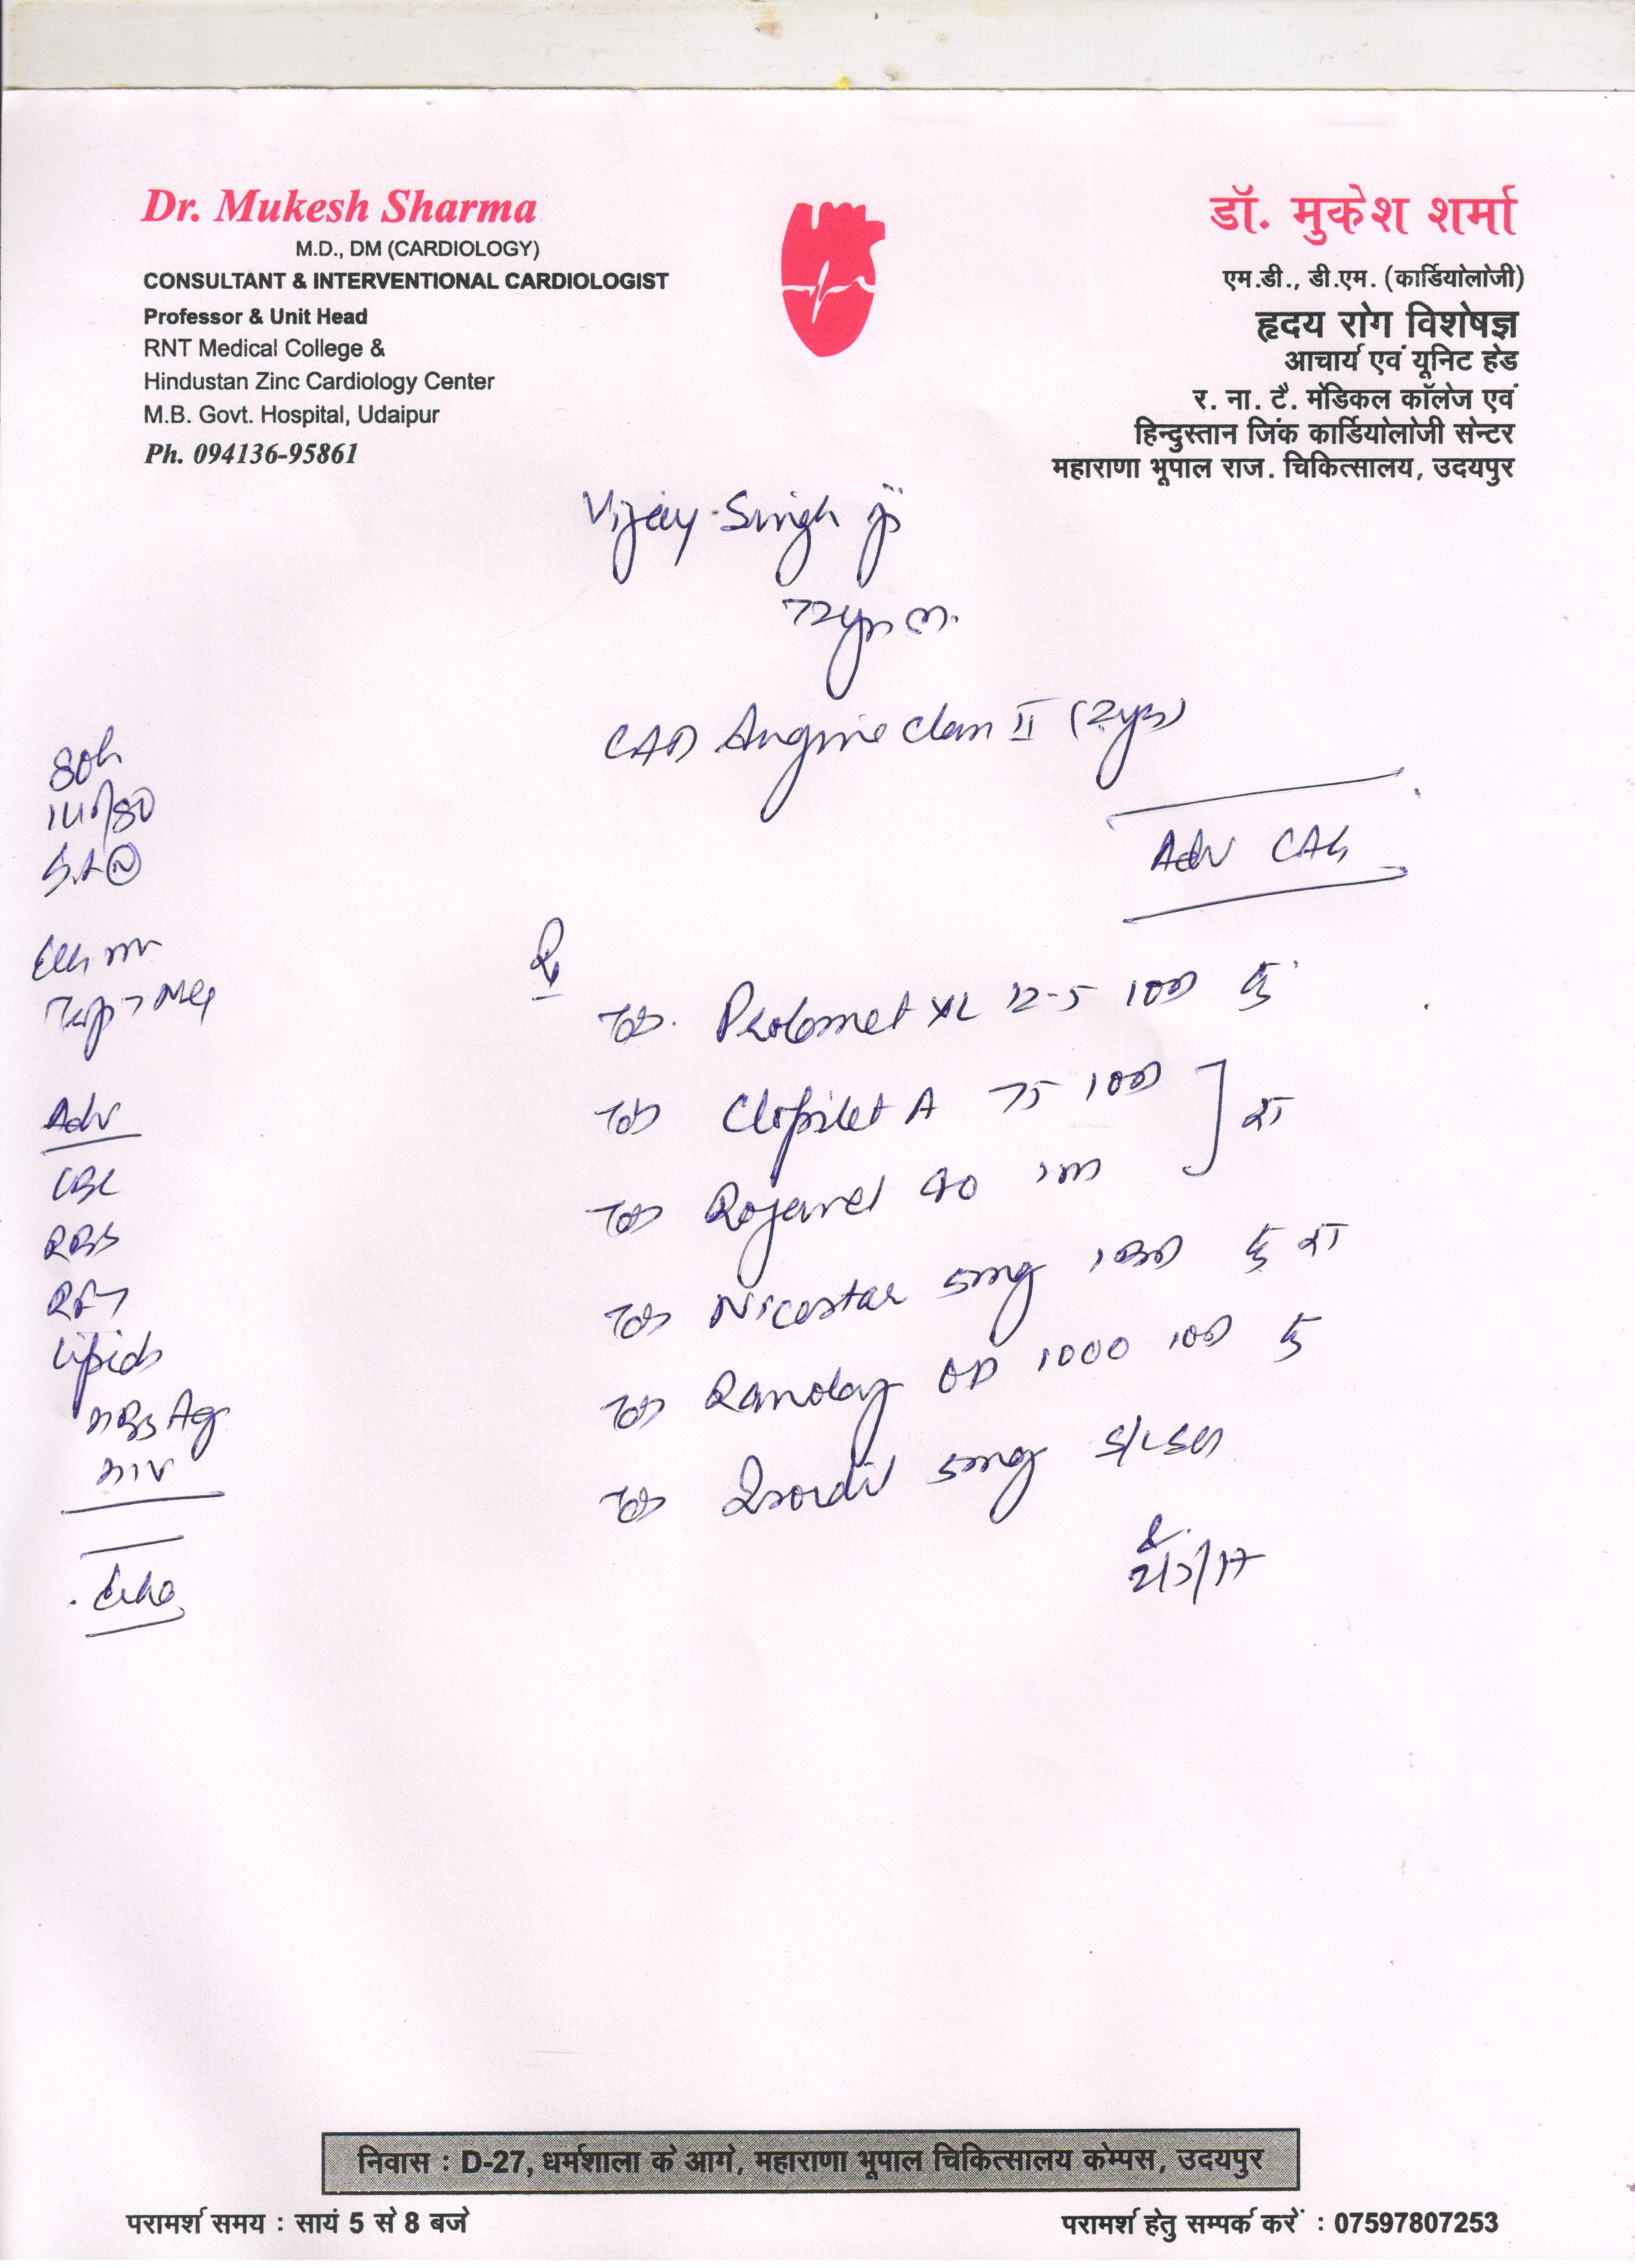 Dr. Mukesh Sharma
M.D., DM (CARDIOLOGY)
CONSULTANT & INTERVENTIONAL CARDIOLOGIST
Professor & Unit Head
RNT Medical College &
Hindustan Zinc Cardiology Center
M.B. Govt. Hospital, Udaipur
Ph. 094136-95861
डॉ. मुकेश शर्मा
एम.डी., डी.एम. (कार्डियोलॉजी)
हृदय रोग विशेषज्ञ
आचार्य एवं यूनिट हेड
र. ना. टै. मेडिकल कॉलेज एवं
हिन्दुस्तान जिंक कार्डियोलोजी सेन्टर
महाराणा भूपाल राज. चिकित्सालय, उदयपुर
Vijay Singh ji
72yrs m.
CAD Angina Class II (2yrs)
Adv CAG
140/80
Adv
CBC
RBS
RFT
Lipids
HBsAg
HIV
Echo
Tab. Prolomet XL 12.5 10D सु
Tab Clopilet A 75 10D
Tab 40
रा
Tab Nicostar 5mg सु रा
Tab Ranolaz OD 1000 10D सु
Tab Isordil 5mg S/L SOS
निवास : D-27, धर्मशाला के आगे, महाराणा भूपाल चिकित्सालय केम्पस, उदयपुर
परामर्श समय : सायं 5 से 8 बजे
परामर्श हेतु सम्पर्क करें : 07597807253